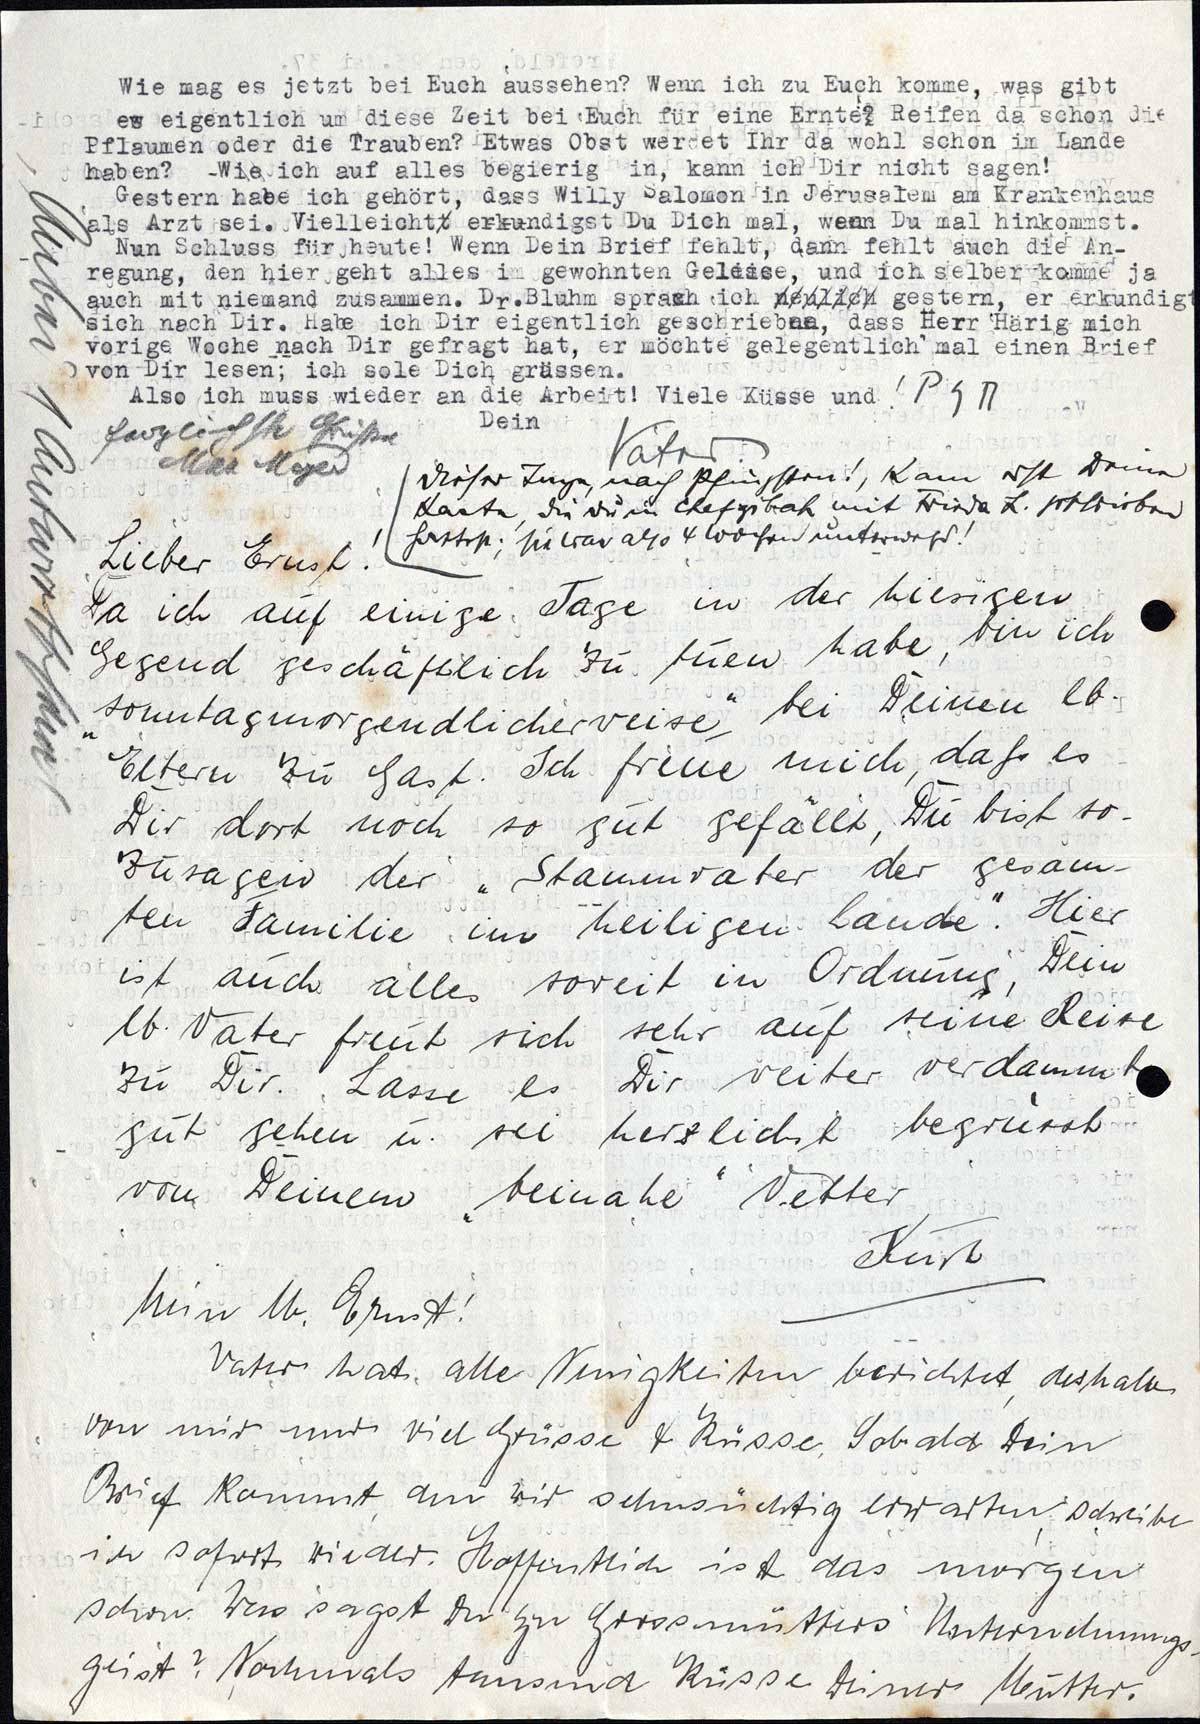 Wie mag es jetzt bei Euch aussehen? Wenn ich zu Euch komme, was gibt
es eigentlich um diese Zeit bei Euch für eine Ernte? Reifen da schon die
Pflaumen oder die Trauben? Etwas Obst werdet Ihr da wohl schon im Lande
haben? Wie ich auf alles begierig in, kann ich Dir nicht sagen!
Gestern habe ich gehört, dass Willy Salomon in Jerusalem am Krankenhaus
als Arzt sei. Vielleicht erkundigst Du Dich mal, wenn Du mal hinkommst.
Nun Schluss für heute! Wenn Dein Brief fehlt, dann fehlt auch die An-
regung, den hier geht alles im gewohnten Geleise, und ich selber komme ja
auch mit niemand zusammen. Dr.Bluhm sprach ich neulich gestern, er erkundigt
sich nach Dir. Habe ich Dir eigentlich geschrieben, dass Herr Härig mich
vorige Woche nach Dir gefragt hat, er möchte gelegentlich mal einen Brief
von Dir lesen; ich sole Dich grüssen.
Also ich muss wieder an die Arbeit! Viele Küsse und !
Dein
Vater
herzlichste Grüße
Max Meyer
Dieser Tage, nach Pfingsten!, kam erst Deine
Karte, die Du in Chefzibah mit Frieda L. geschrieben
hattest; sie war also 4 Wochen unterwegs!
Lieber Ernst!
Da ich auf einige Tage in der hiesigen
Gegend geschäftlich zu tuen habe, bin ich
„sonntagmorgendlicherweise“ bei Deinen lb.
Eltern zu Gast. Ich freue mich, daß es
Dir dort noch so gut gefällt, Du bist so-
zusagen der „Stammvater der gesam-
ten Familie im heiligen Lande“. Hier
ist auch alles soweit in Ordnung, Dein
lb. Vater freut sich sehr auf seine Reise
zu Dir. Lasse es Dir weiter verdammt
gut gehen u. sei herzlichst begrüsst
von Deinem „beinahe“ Vetter
Kurt
Mein lb. Ernst!
Vater hat alle Neuigkeiten berichtet, deshalb
von mir nur viel Grüsse & Küsse. Sobald Dein
Brief kommt, den wir sehnsüchtig erwarten, schreibe
ich sofort wieder. Hoffentlich ist das morgen
schon. Was sagst Du zu Grossmutters Unternehmungs-
geist? Nochmals tausend Küsse Deiner Mutter.